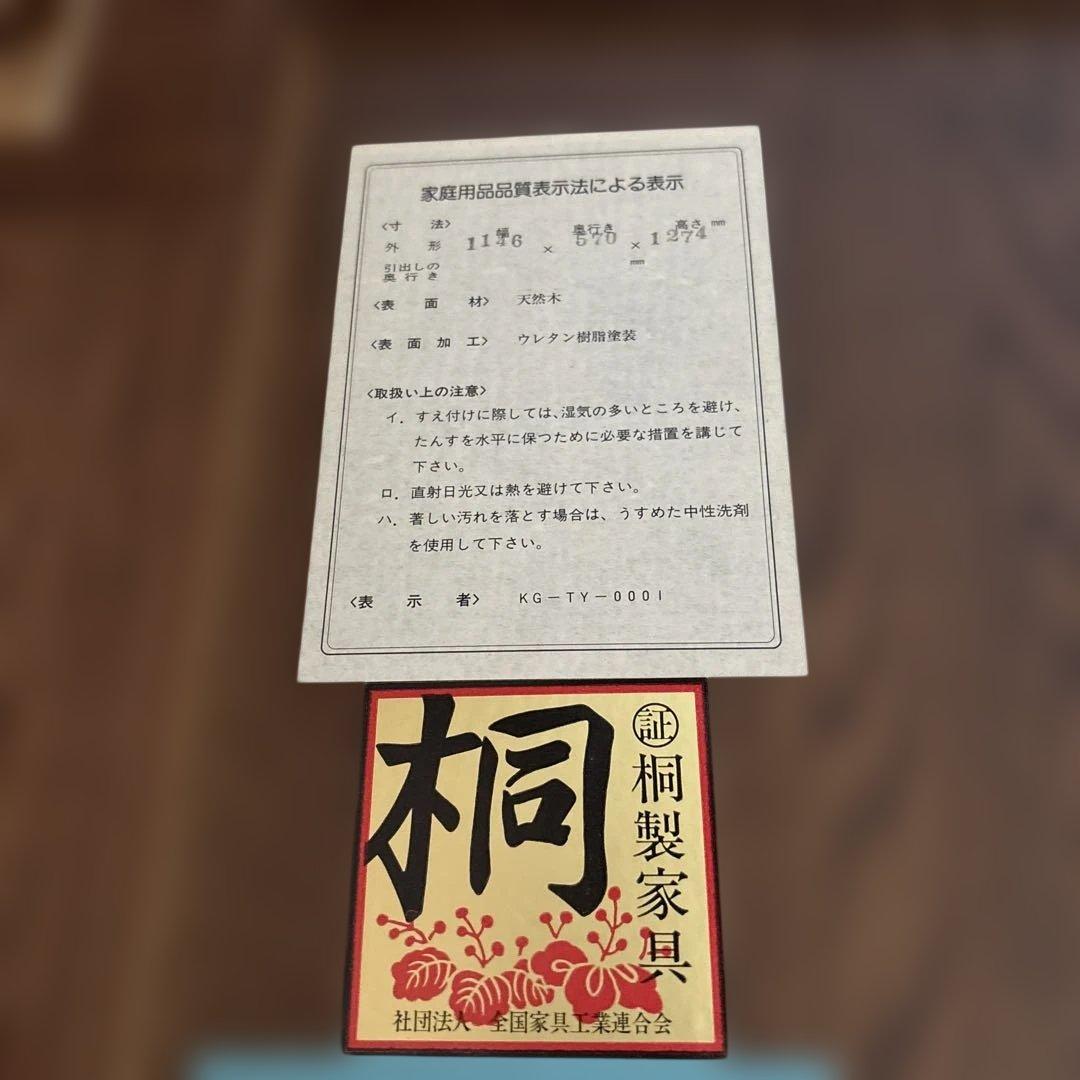 家庭用品品質表示法による表示
〈寸法〉 幅 奥行き 高さ mm
外形 1146 × 570 × 1274
引出しの奥行き mm
〈表面材〉 天然木
〈表面加工〉 ウレタン樹脂塗装
〈取扱い上の注意〉
イ. すえ付けに際しては、湿気の多いところを避け、
たんすを水平に保つために必要な措置を講じて
下さい。
ロ. 直射日光又は熱を避けて下さい。
ハ. 著しい汚れを落とす場合は、うすめた中性洗剤
を使用して下さい。
〈表示者〉 KG-TY-0001
桐
証 桐製家具
社団法人 全国家具工業連合会